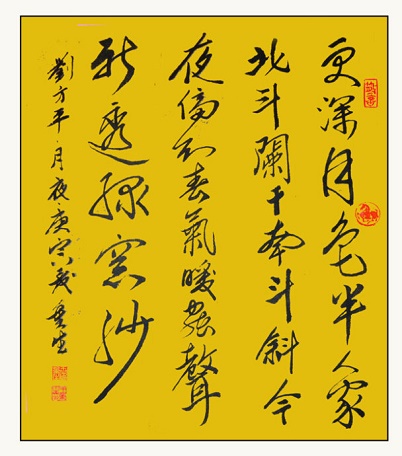 更深月色半人家
北斗闌干南斗斜今
夜偏知春氣暖蟲聲
新透綠窗紗
劉方平月夜庚寅歲